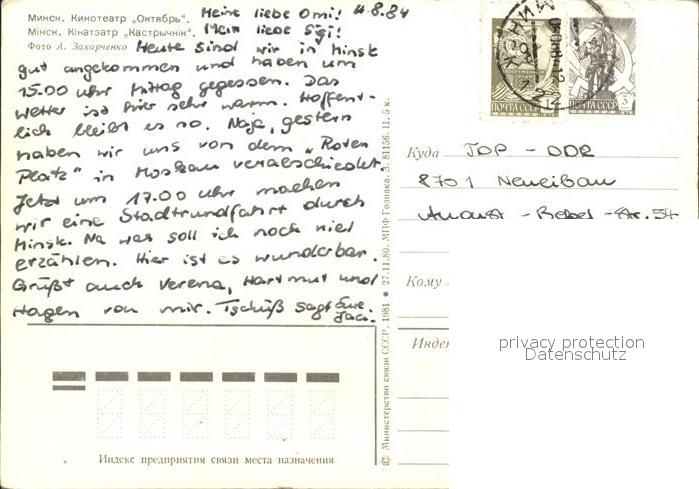 Минск. Кинотеатр „Октябрь".
Мінск. Кінатэатр „Кастрычнік".
Фото А. Захарченко
Meine liebe Omi! 11.8.84
Mein liebe Sigi!
Heute sind wir in Minsk
gut angekommen und haben um
15.00 Uhr Mittag gegessen. Das
Wetter ist hier sehr warm. Hoffent-
lich bleibt es so. Naja, gestern
haben wir uns von dem „Roten
Platz" in Moskau verabschiedet.
Jetzt um 17.00 Uhr machen
wir eine Stadtrundfahrt durch
Minsk. Na was soll ich noch viel
erzählen. Hier ist es wunderbar.
Grüßt auch Verena, Hartmut und
Hagen von mir. Tschüß sagt Eure
Jaci.
Индекс предприятия связи места назначения
© Министерство связи СССР, 1981 ● 27.11.80. МПФ Гознака. З. 81156. Ц. 5 к.
МИНСК
ПОЧТА СССР
ПОЧТА СССР
Куда TDP - DDR
8701 Neueibau
August - Bebel - Str. 54
Кому
Индекс
privacy protection
Datenschutz